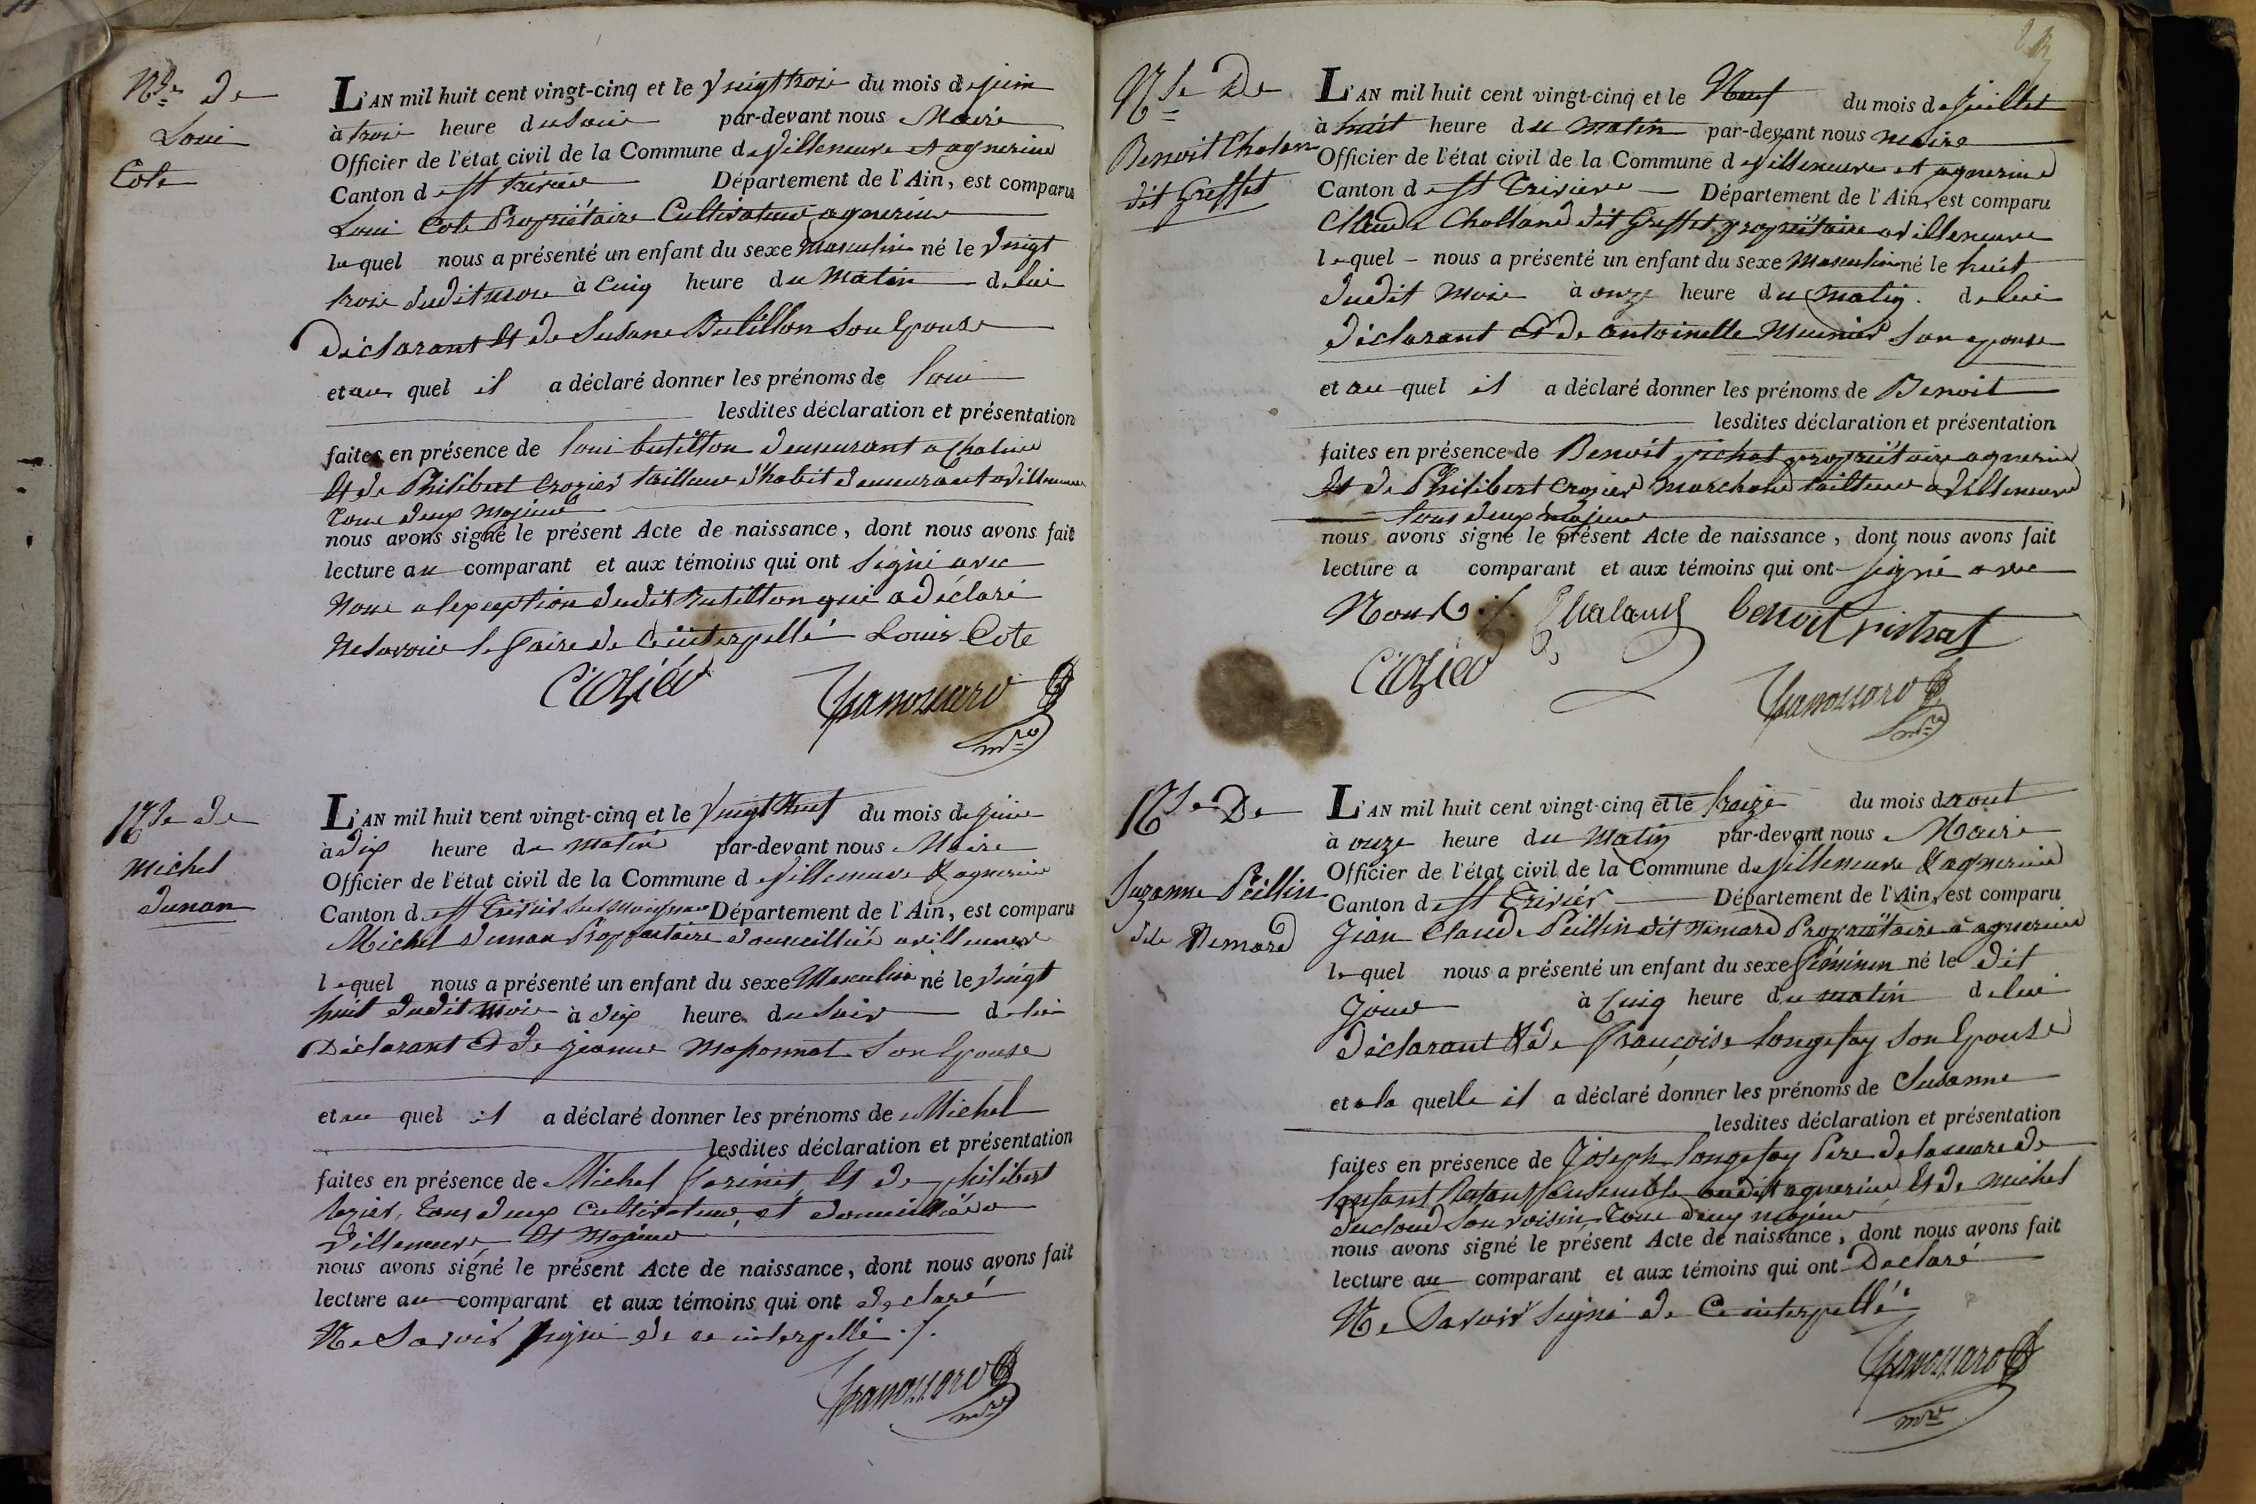 Nce de
Loui
Cote
L'AN mil huit cent vingt-cinq et le vingt trois du mois de juin
à trois heure du soir par-devant nous Maire
Officier de l'état civil de la Commune de villeneuve et agnerins
Canton de st trivier Département de l'Ain, est comparu
Loui Cote Propriétaire Cultivateur agnerins
lequel nous a présenté un enfant du sexe masculin né le vingt
trois dudit mois à cinq heure du matin de lui
déclarant et de Susane Butillon son Epouse
et au quel il a déclaré donner les prénoms de Loui
lesdites déclaration et présentation
faites en présence de loui butillon demeurant a Chaleins
et de Philibert Crozier tailleur d'habit demeurant a villeneuve
tous deux majeurs
nous avons signé le présent Acte de naissance, dont nous avons fait
lecture au comparant et aux témoins qui ont signé avec
Nous a lexception dudit butillon qui a déclaré
Ne savoir le faire de ce interpellé Louis Cote
Crozier
mre
Nce de
Michel
dunan
L'AN mil huit cent vingt-cinq et le vingt Neuf du mois de juin
à dix heure du matin par-devant nous Maire
Officier de l'état civil de la Commune de villeneuve & agnerins
Canton de st Trivier sur Moignans Département de l'Ain, est comparu
Michel dunan Propriétaire domicillié a villeneuve
lequel nous a présenté un enfant du sexe Masculin né le vingt
huit dudit mois à dix heure du soir de lui
Déclarant et de jeanne Maponnat son Epouse
et au quel il a déclaré donner les prénoms de Michel
lesdites déclaration et présentation
faites en présence de Michel et de philibert
tous deux Cultivateur et domicillié a
villeneuve et Majeurs
nous avons signé le présent Acte de naissance, dont nous avons fait
lecture au comparant et aux témoins qui ont declaré
Ne Savoir signé de ce interpellé ./.
mre
Nce De
Benoit Chalan
dit Greffet
L'AN mil huit cent vingt-cinq et le Neuf du mois de Juillet
à huit heure du matin par-devant nous maire
Officier de l'état civil de la Commune de villeneuve et agnerins
Canton de st Trivier Département de l'Ain, est comparu
Claude Challand dit Greffet propriétaire a villeneuve
lequel nous a présenté un enfant du sexe masculin né le huit
dudit Mois à onze heure du matin. de lui
déclarant et de antoinette Meunier son epouse
et au quel il a déclaré donner les prénoms de Benoit
lesdites déclaration et présentation
faites en présence de Benoit pichat propriétaire agnerins
et de Philibert Crozier marchand tailleur a villeneuve
tous deux majeurs
nous avons signé le présent Acte de naissance, dont nous avons fait
lecture a comparant et aux témoins qui ont signé avec
Nous ./. Chaland benoit pichat
Crozier
mre
Nce De
Suzanne Peillin
dite Nemard
L'AN mil huit cent vingt-cinq et le treize du mois daout
à onze heure du Matin par-devant nous Maire
Officier de l'état civil de la Commune de villeneuve & agnerins
Canton de st Trivier Département de l'Ain, est comparu
Jean Claude Peillin dit Nemard Propriétaire à agnerins
lequel nous a présenté un enfant du sexe féminin né le dit
Jour à Cinq heure du matin de lui
déclarant et de françoise longefay son Epouse
et a la quelle il a déclaré donner les prénoms de Susanne
lesdites déclaration et présentation
faites en présence de Joseph longefay Pere de la mere de
lenfant Restant Ensemble audit agnerins et de michel
ducloud son voisin tous deux majeurs
nous avons signé le présent Acte de naissance, dont nous avons fait
lecture au comparant et aux témoins qui ont Declaré
Ne Savoir signé de Ce interpellé
mre